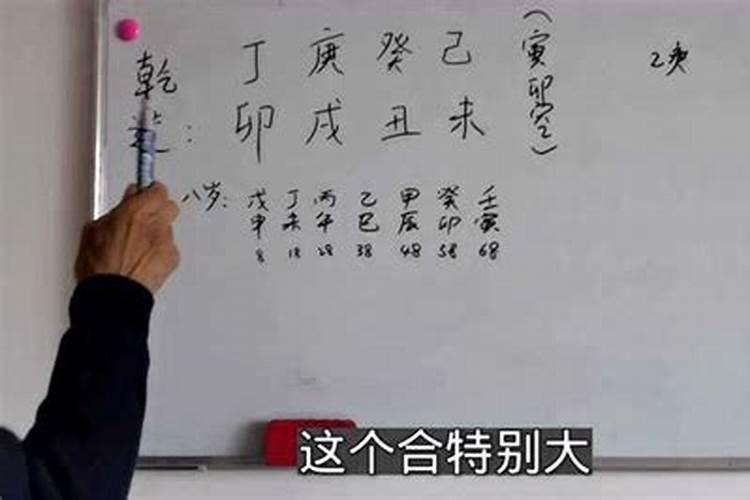 乾 丁 庚 癸 己
造： 卯 戌 丑 未
（寅卯空）
乙庚
八岁： 戊 丁 丙 乙 甲 癸 壬
申 未 午 巳 辰 卯 寅
8 18 28 38 48 58 68
这个合特别大